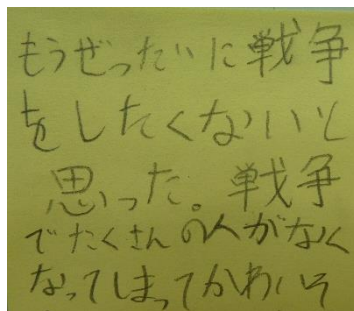 もうぜったいに戦争
をしたくないと
思った。戦争
でたくさんの人がなく
なってしまってかわいそ